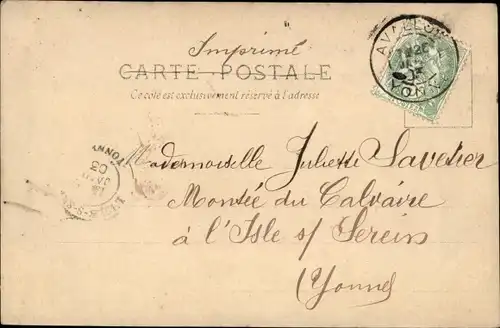 Imprimé
CARTE POSTALE
Ce côté est exclusivement réservé à l'adresse
AVALLON
YONNE
Mademoiselle Juliette Savetier
Montée du Calvaire
à l'Isle s/ Serein
(Yonne)
YONNE
03